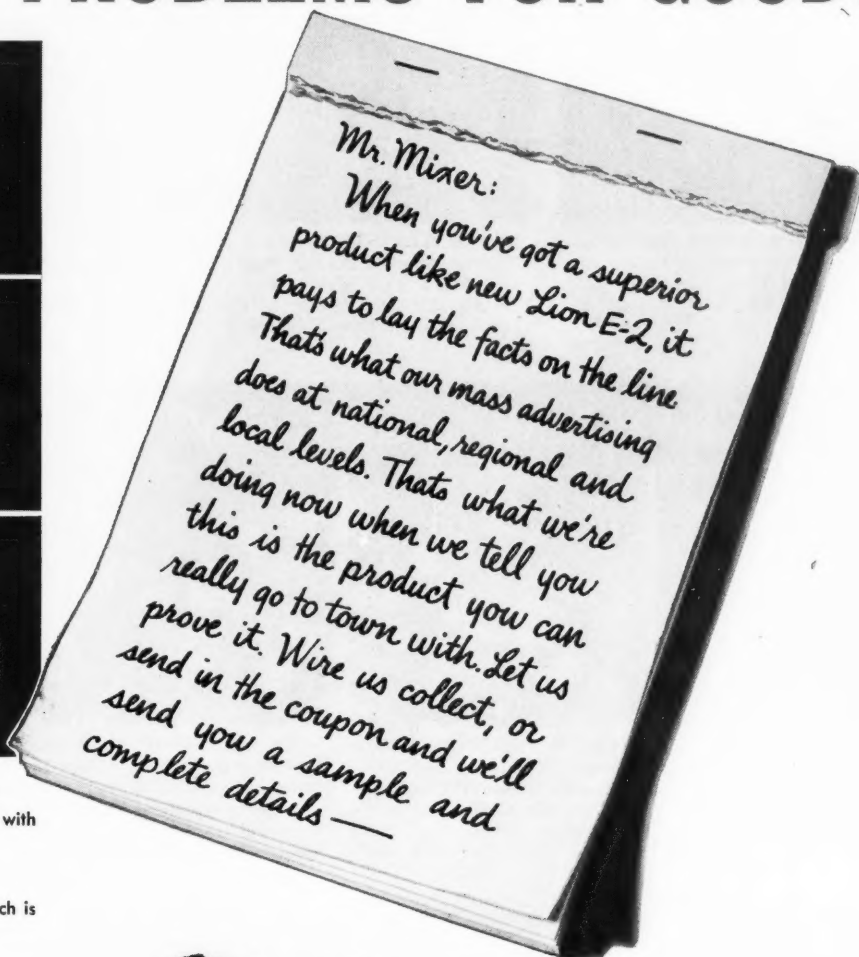 PROBLEMS FOR GOOD
Mr. Mixer:
When you've got a superior
product like new Lion E-2, it
pays to lay the facts on the line
That's what our mass advertising
does at national, regional and
local levels. Thats what we're
doing now when we tell you
this is the product you can
really go to town with. Let us
prove it. Wire us collect, or
send in the coupon and we'll
send you a sample and
complete details —
with
ch is